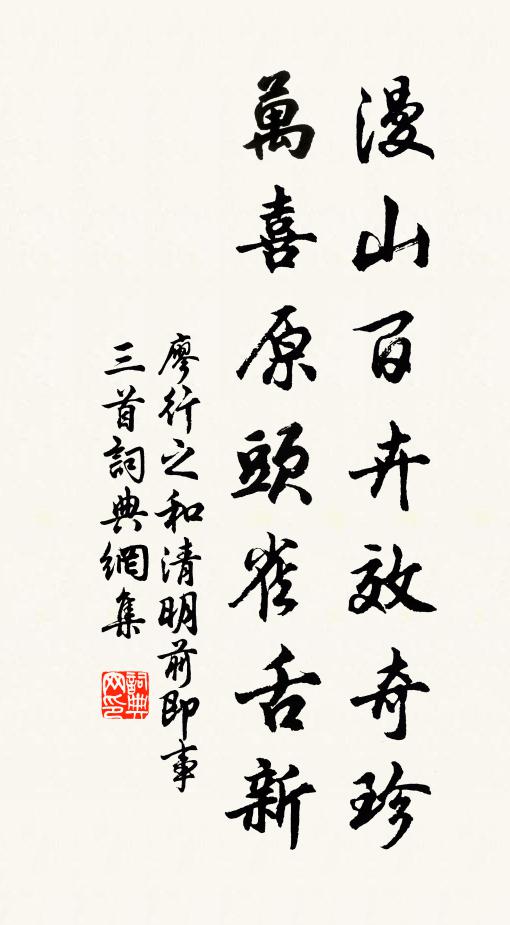 漫山百卉效奇珍
萬喜原頭雀舌新
廖行之和清明前即事
三首詞典網集
詞典
网印